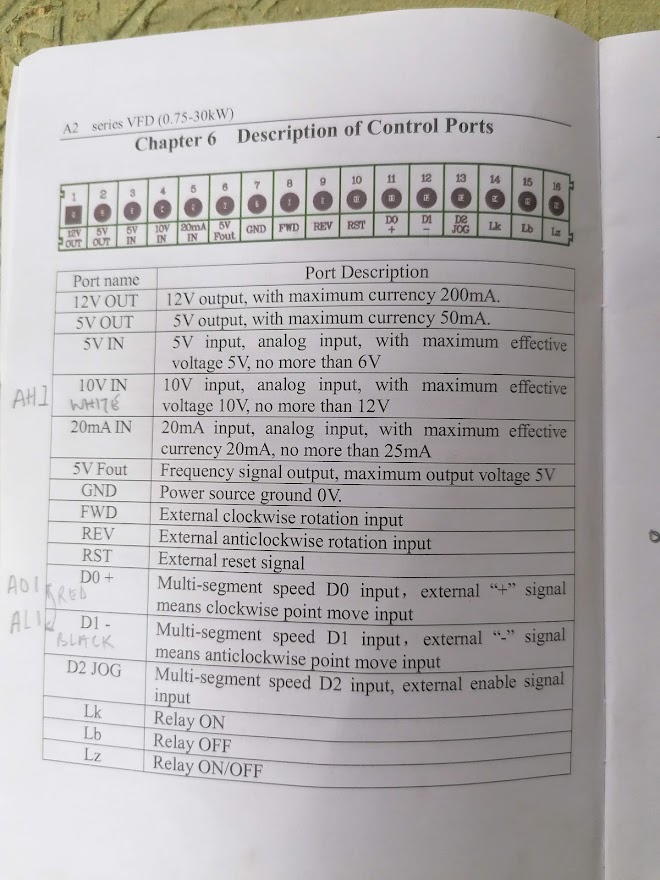 A2 series VFD (0.75-30kW)
Chapter 6 Description of Control Ports
1 2 3 4 5 6 7 8 9 10 11 12 13 14 15 16
12V OUT 5V OUT 5V IN 10V IN 20mA IN 5V Fout GND FWD REV RST D0 + D1 - D2 JOG Lk Lb Lz
Port name Port Description
12V OUT 12V output, with maximum currency 200mA.
5V OUT 5V output, with maximum currency 50mA.
5V IN 5V input, analog input, with maximum effective
voltage 5V, no more than 6V
AH1 10V IN 10V input, analog input, with maximum effective
WHITE voltage 10V, no more than 12V
20mA IN 20mA input, analog input, with maximum effective
currency 20mA, no more than 25mA
5V Fout Frequency signal output, maximum output voltage 5V
GND Power source ground 0V.
FWD External clockwise rotation input
REV External anticlockwise rotation input
RST External reset signal
AO1 D0 + Multi-segment speed D0 input, external "+" signal
RED means clockwise point move input
AL1 D1 - Multi-segment speed D1 input, external "-" signal
BLACK means anticlockwise point move input
D2 JOG Multi-segment speed D2 input, external enable signal
input
Lk Relay ON
Lb Relay OFF
Lz Relay ON/OFF